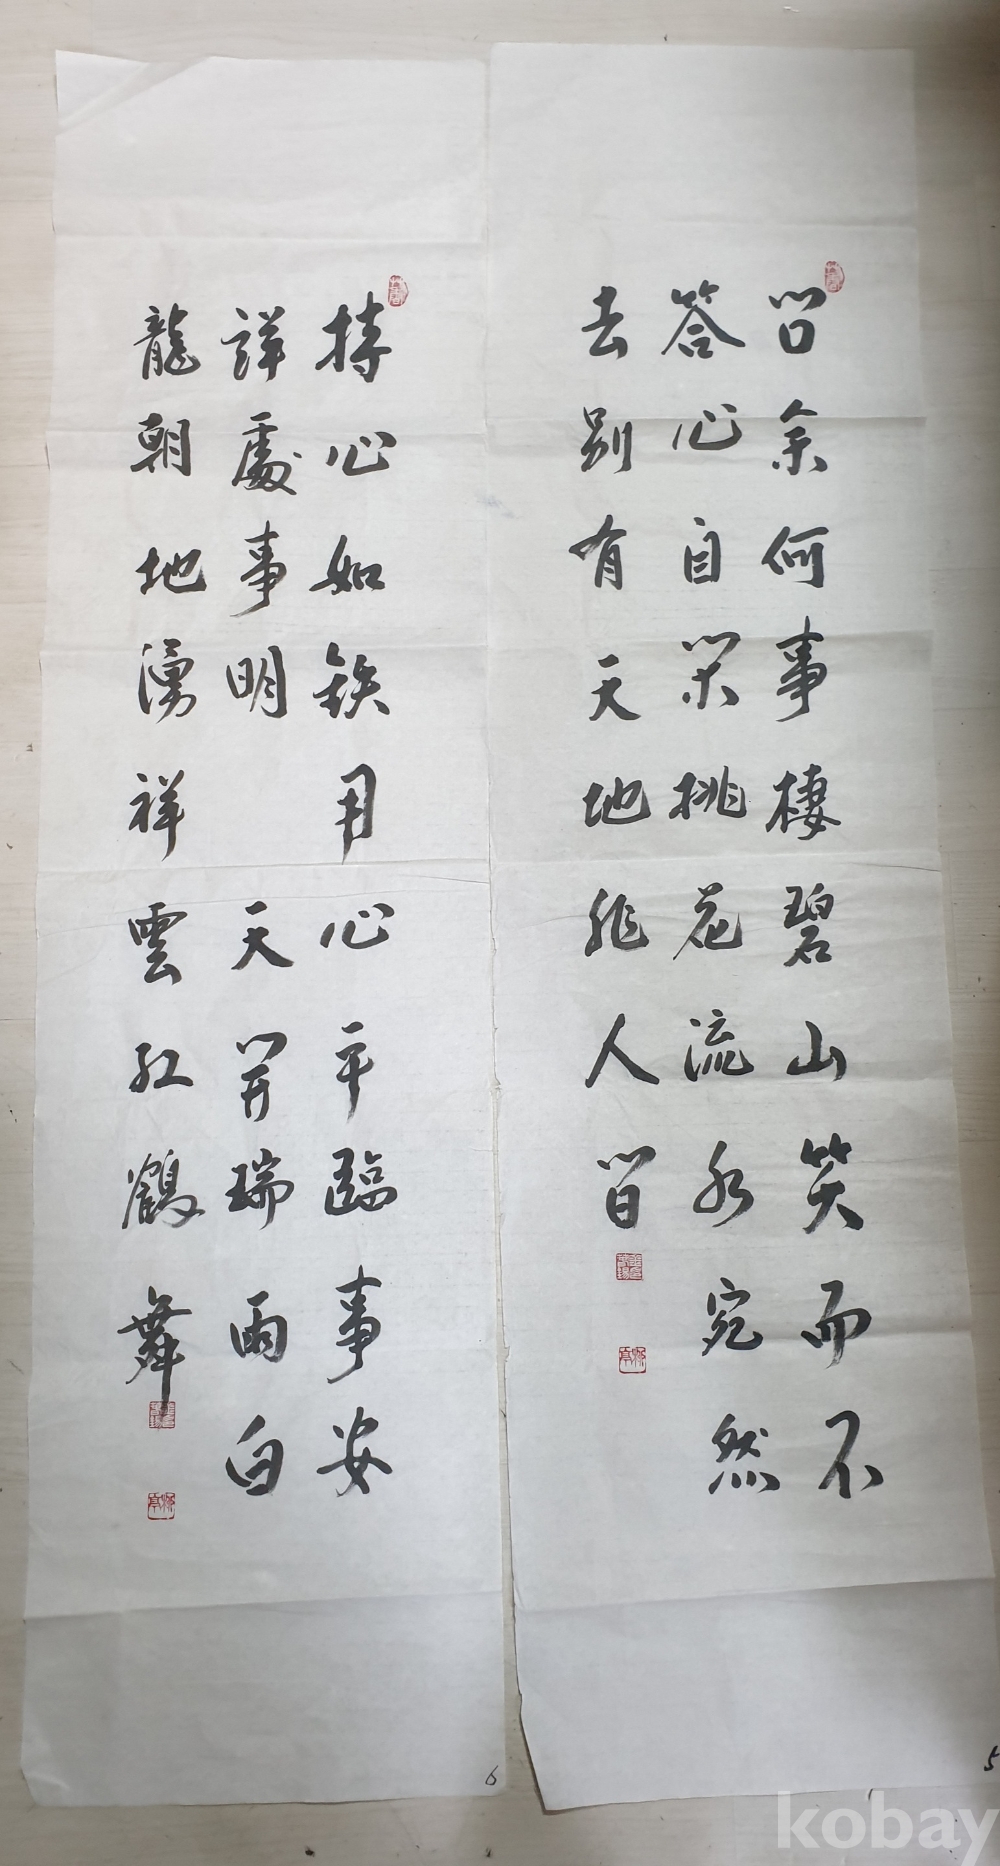 問余何事棲碧山笑而不
答心自閑桃花流水宛然
去別有天地非人間
5
持心如鉄用心平臨事安
詳處事明 天開瑞雨白
龍朝地湧祥雲紅鶴舞
6
kobay